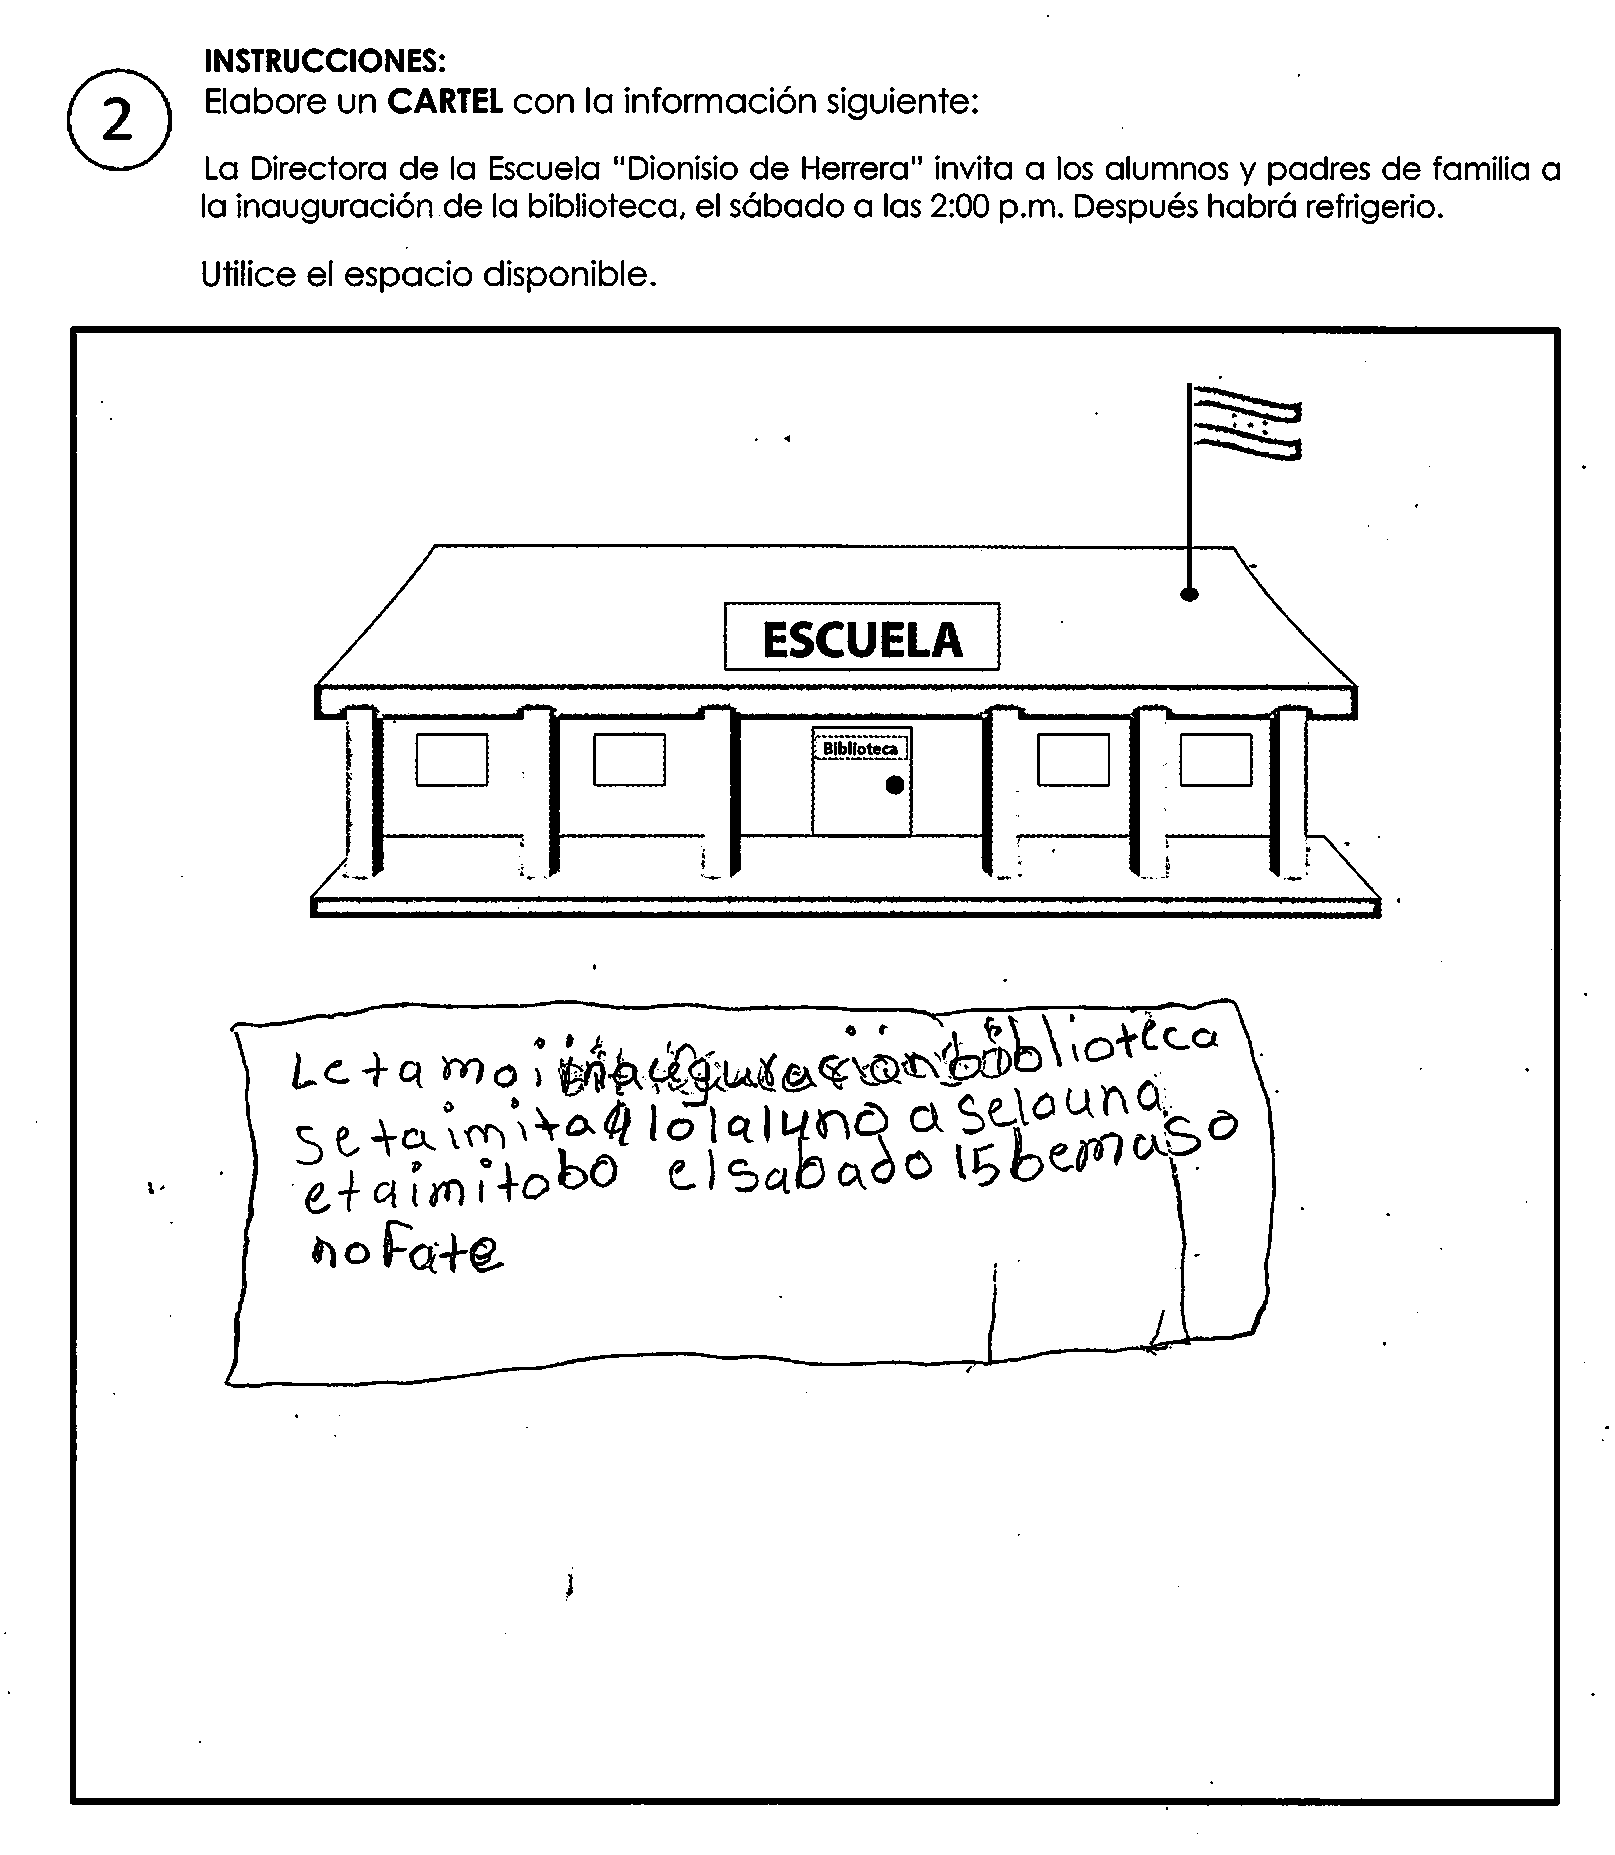 2
INSTRUCCIONES:
Elabore un CARTEL con la información siguiente:
La Directora de la Escuela "Dionisio de Herrera" invita a los alumnos y padres de familia a
la inauguración de la biblioteca, el sábado a las 2:00 p.m. Después habrá refrigerio.
Utilice el espacio disponible.
ESCUELA
Biblioteca
Letamo inauguracion biblioteca
setaimita a lo laluno a selauna
etaimitobo el sabado 15 bemaso
no Fate